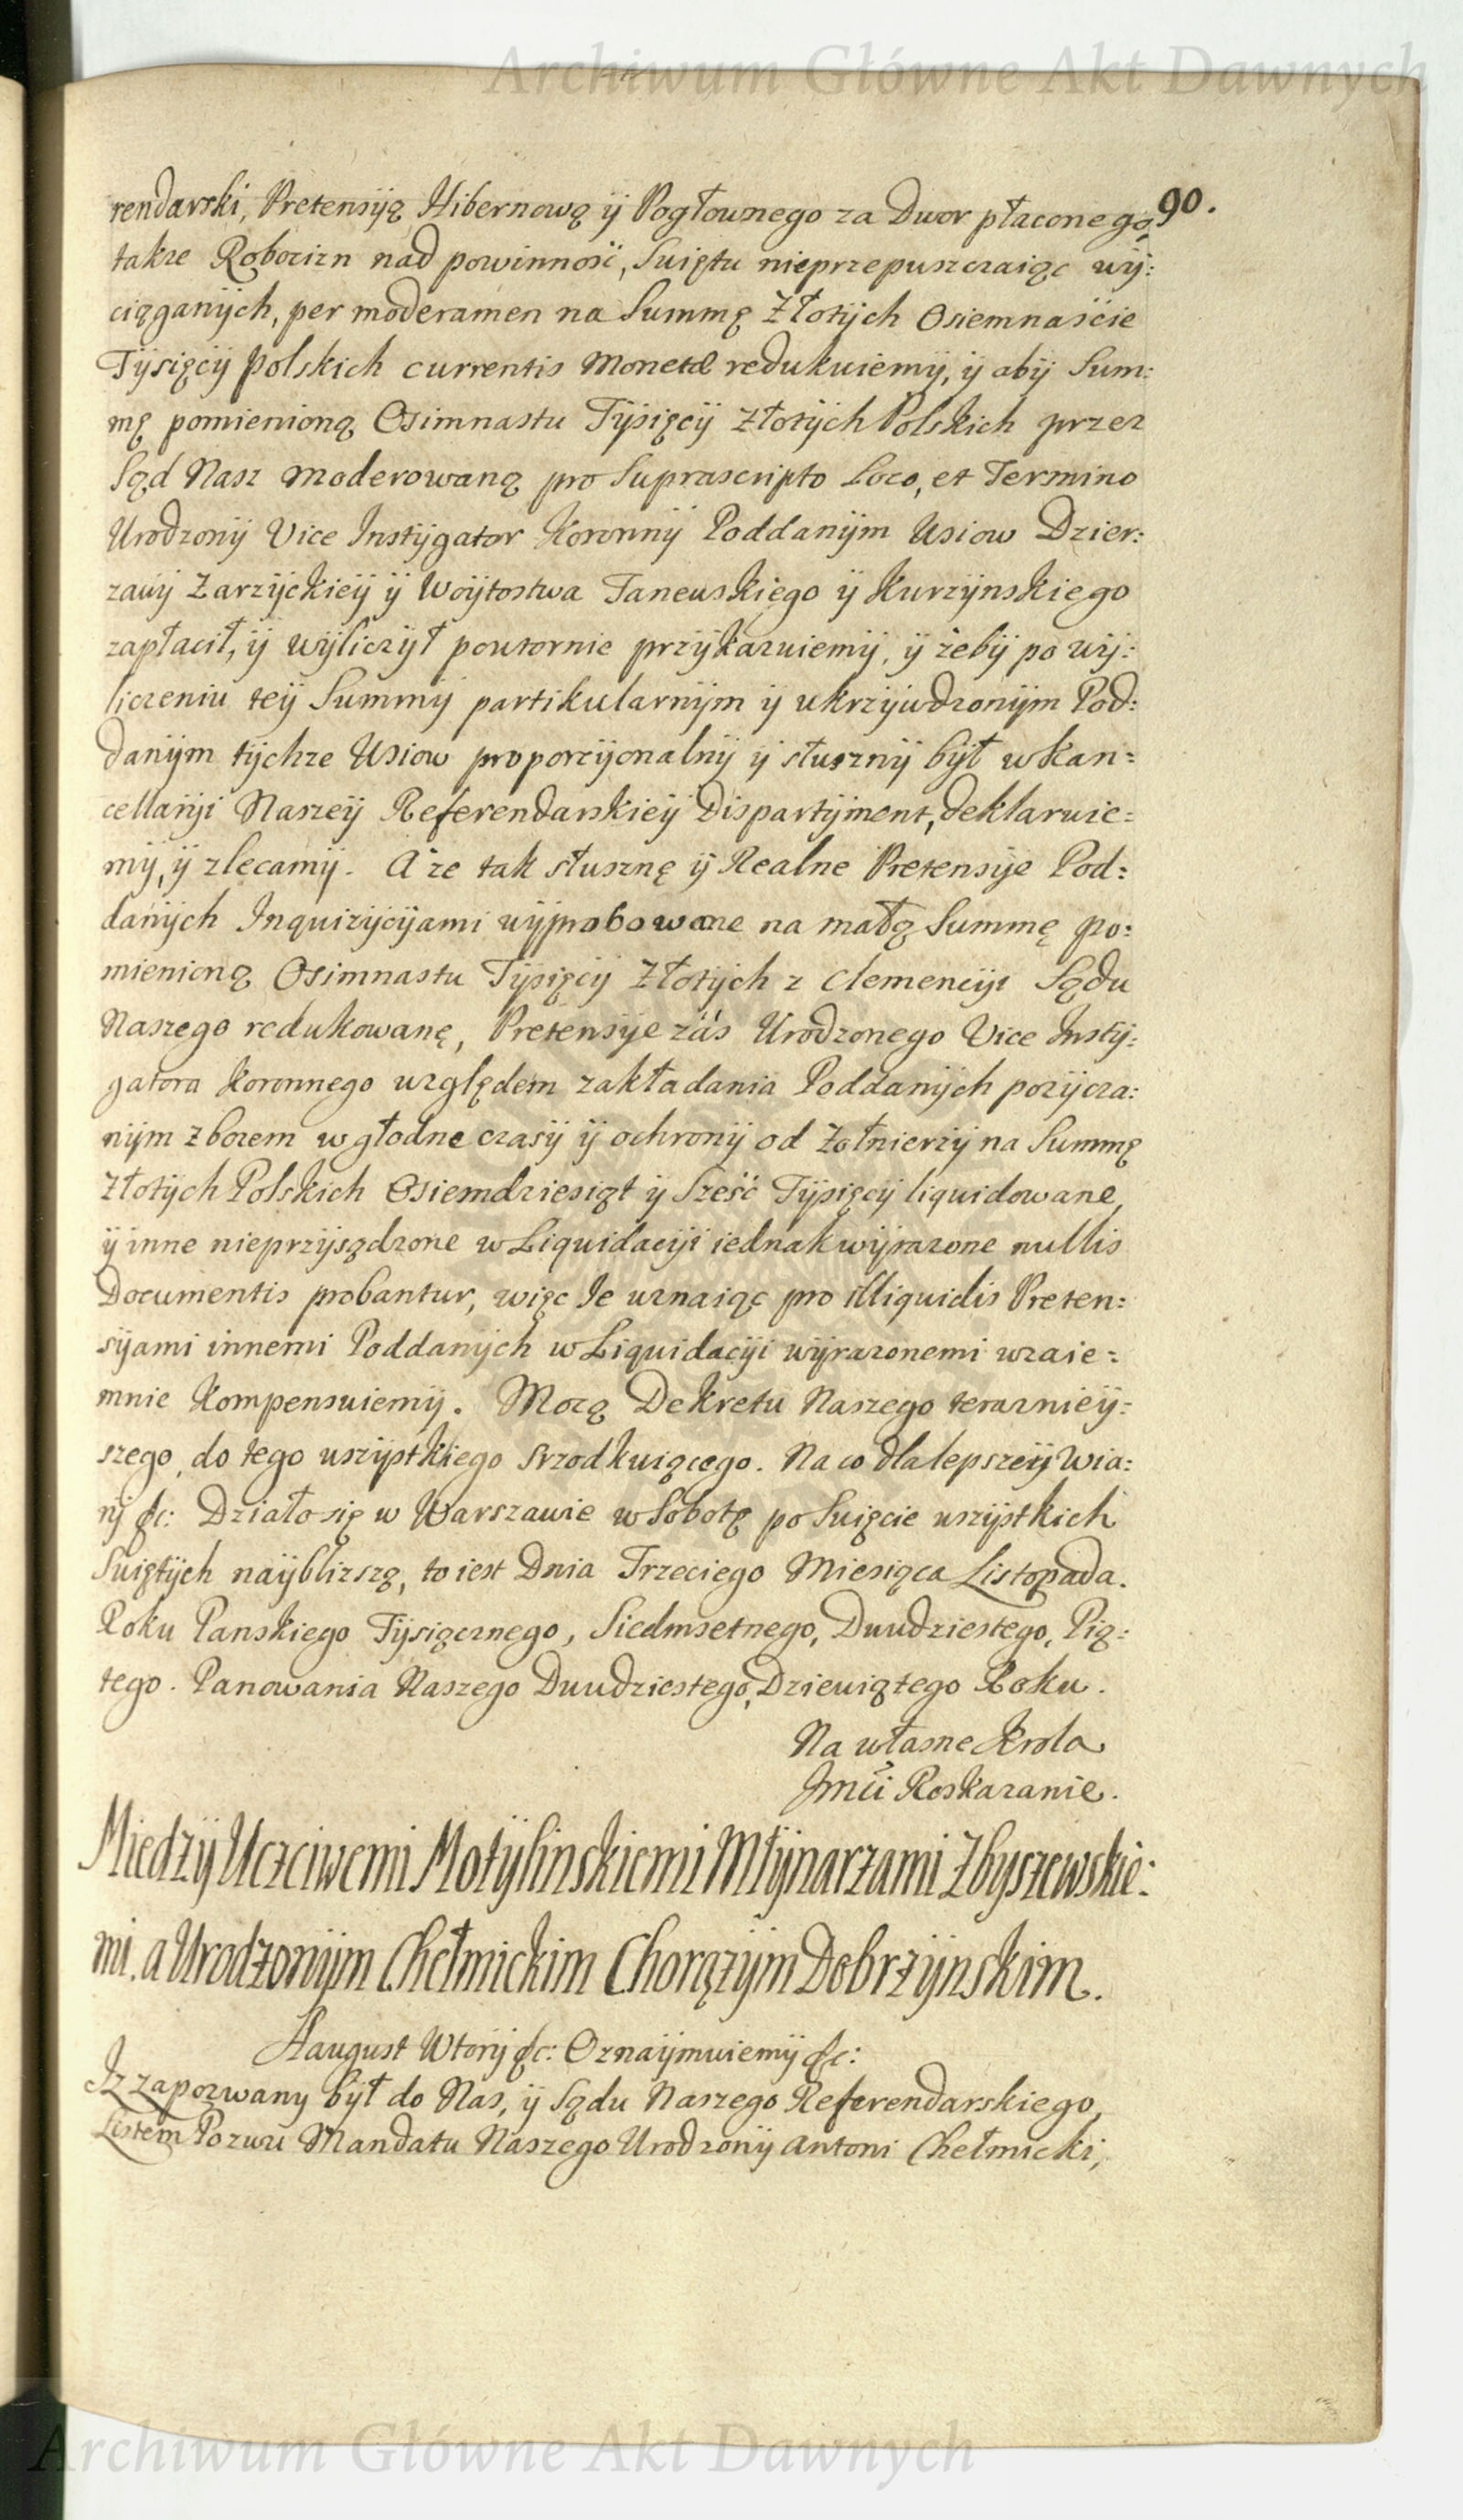 Archiwum Główne Akt Dawnych
90.
rendarski, Pretensyią Hibernową ÿ Pogłownego za Dwor płaconego,
takze Roboczizn nad powinność, Swiętu nieprzepuszczaiąc wÿ:
ciąganÿch, per moderamen na Summę Złotÿch Osiemnaście
Tÿsięcÿ Polskich currentis Monetæ redukuiemÿ, ÿ abÿ Sum:
mę pomienioną Osimnastu Tÿsięcÿ Złotÿch Polskich przez
Sąd Nasz moderowaną pro Suprascripto Loco, et Termino
Urodzonÿ Vice Instÿgator Koronnÿ Poddanÿm Wsiow Dzier:
zawÿ Zarzÿckieÿ ÿ Woÿtostwa Tanewskiego ÿ Kurzÿnskiego
zapłacił, ÿ wÿliczÿł powtornie przÿkazuiemÿ, ÿ żebÿ po wÿ:
liczeniu teÿ Summÿ partikularnÿm ÿ ukrzÿwdzonÿm Pod:
danÿm tÿchze Wsiow proporcÿonalnÿ ÿ słusznÿ bÿł w Kan=
cellarÿi Naszeÿ Referendarskieÿ Dispartÿment, deklaruie=
mÿ, ÿ zlecamÿ. A że tak słusznę ÿ Realne Pretensÿe Pod:
danÿch Inquizÿcÿami wÿprobowane na małą Summę po:
mienioną Osimnastu Tÿsięcÿ Złotÿch z Clemencÿi Sądu
Naszego redukowanę, Pretensÿe zaś Urodzonego Vice Instÿ:
gatora Koronnego względem zakładania Poddanÿch pozÿcza:
nÿm zbożem w głodne czasÿ ÿ ochronÿ od Żołnierzÿ na Summę
Złotÿch Polskich Osiemdziesiąt ÿ Sześć Tÿsięcÿ liquidowane,
ÿ inne nieprzÿsądzone w Liquidacÿi iednak wÿrazone nullis
Documentis probantur, więc Je uznaiąc pro illiquidis Preten=
sÿami innemi Poddanÿch w Liquidacÿi wÿrazonemi wzaie=
mnie Kompensuiemÿ. Mocą Dekretu Naszego teraznieÿ=
szego, do tego wszÿstkiego srzodkuiącego. Na co dla lepszeÿ Wia:
rÿ &c: Działo się w Warszawie w Sobotę po Swięcie wszÿstkich
Swiętÿch naÿblizszą, to iest Dnia Trzeciego Miesiąca Listopada.
Roku Panskiego Tÿsiącznego, Siedmsetnego, Dwudziestego, Pią:
tego. Panowania Naszego Dwudziestego, Dziewiątego Roku.
Na własne Krola
Jmci Roskazanie.
Miedzÿ Uczciwemi Motÿlinskiemi Młÿnarzami Zbyszewskie:
mi, a Urodzonÿm Chełmickim Chorążÿm Dobrzÿnskim.
August Wtorÿ &c: Oznaÿmuiemÿ &c:
Iz zapozwany bÿł do Nas, ÿ Sądu Naszego Referendarskiego,
Listem Pozwu Mandatu Naszego Urodzonÿ Antoni Chełmicki,
Archiwum Główne Akt Dawnych